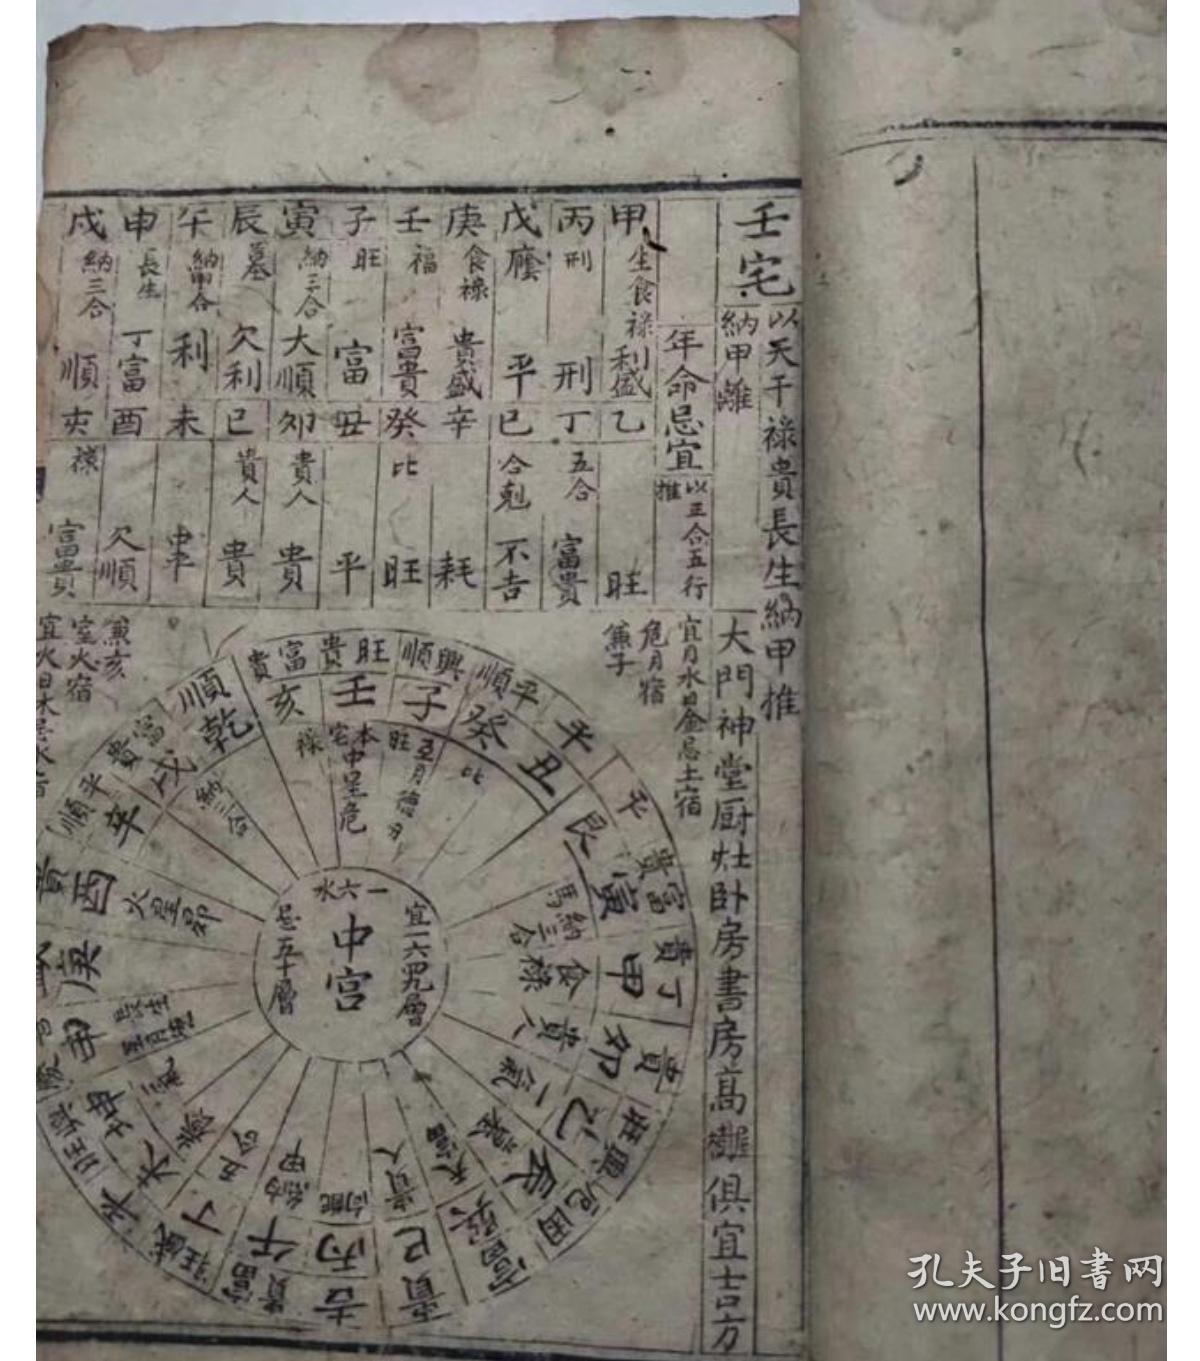 壬宅
以天干祿貴長生納甲推
納甲離
年命忌宜
以三合五行
推
甲 生食祿 利盛 乙 旺
丙 刑 刑 丁 五合 富貴
戊 平 巳 合剋 不吉
庚 食祿 貴盛 辛 耗
壬 福 富貴 癸 比 旺
子 旺 富 丑 平
寅 納三合 大順 卯 貴人 貴
辰 墓 欠利 巳 貴人 貴
午 利 未
申 長生 丁富 酉 欠順
戌 納三合 順 亥 祿 富貴
大門神堂厨灶卧房書房高樓俱宜吉方
宜月水日金忌土宿
危月宿
兼子
兼亥
室火宿
中宮
一六水
宜一六層
忌五十層
壬 旺貴 本宅中星危
子 興順 旺
癸 平順 比
丑 平
艮 平
寅 富貴 馬納三合
甲 丁貴 食祿
卯 貴 貴人
乙 興旺
辰
巽 富
巳 貴 貴人
丙 吉
午 貴富 納甲
丁 旺盛 五合
未 平
坤 旺
申 長生
庚
酉 貴 火星昴
辛 平順
戌 富貴 納三合
乾 順
亥 富貴 祿
孔夫子旧書网
www.kongfz.com